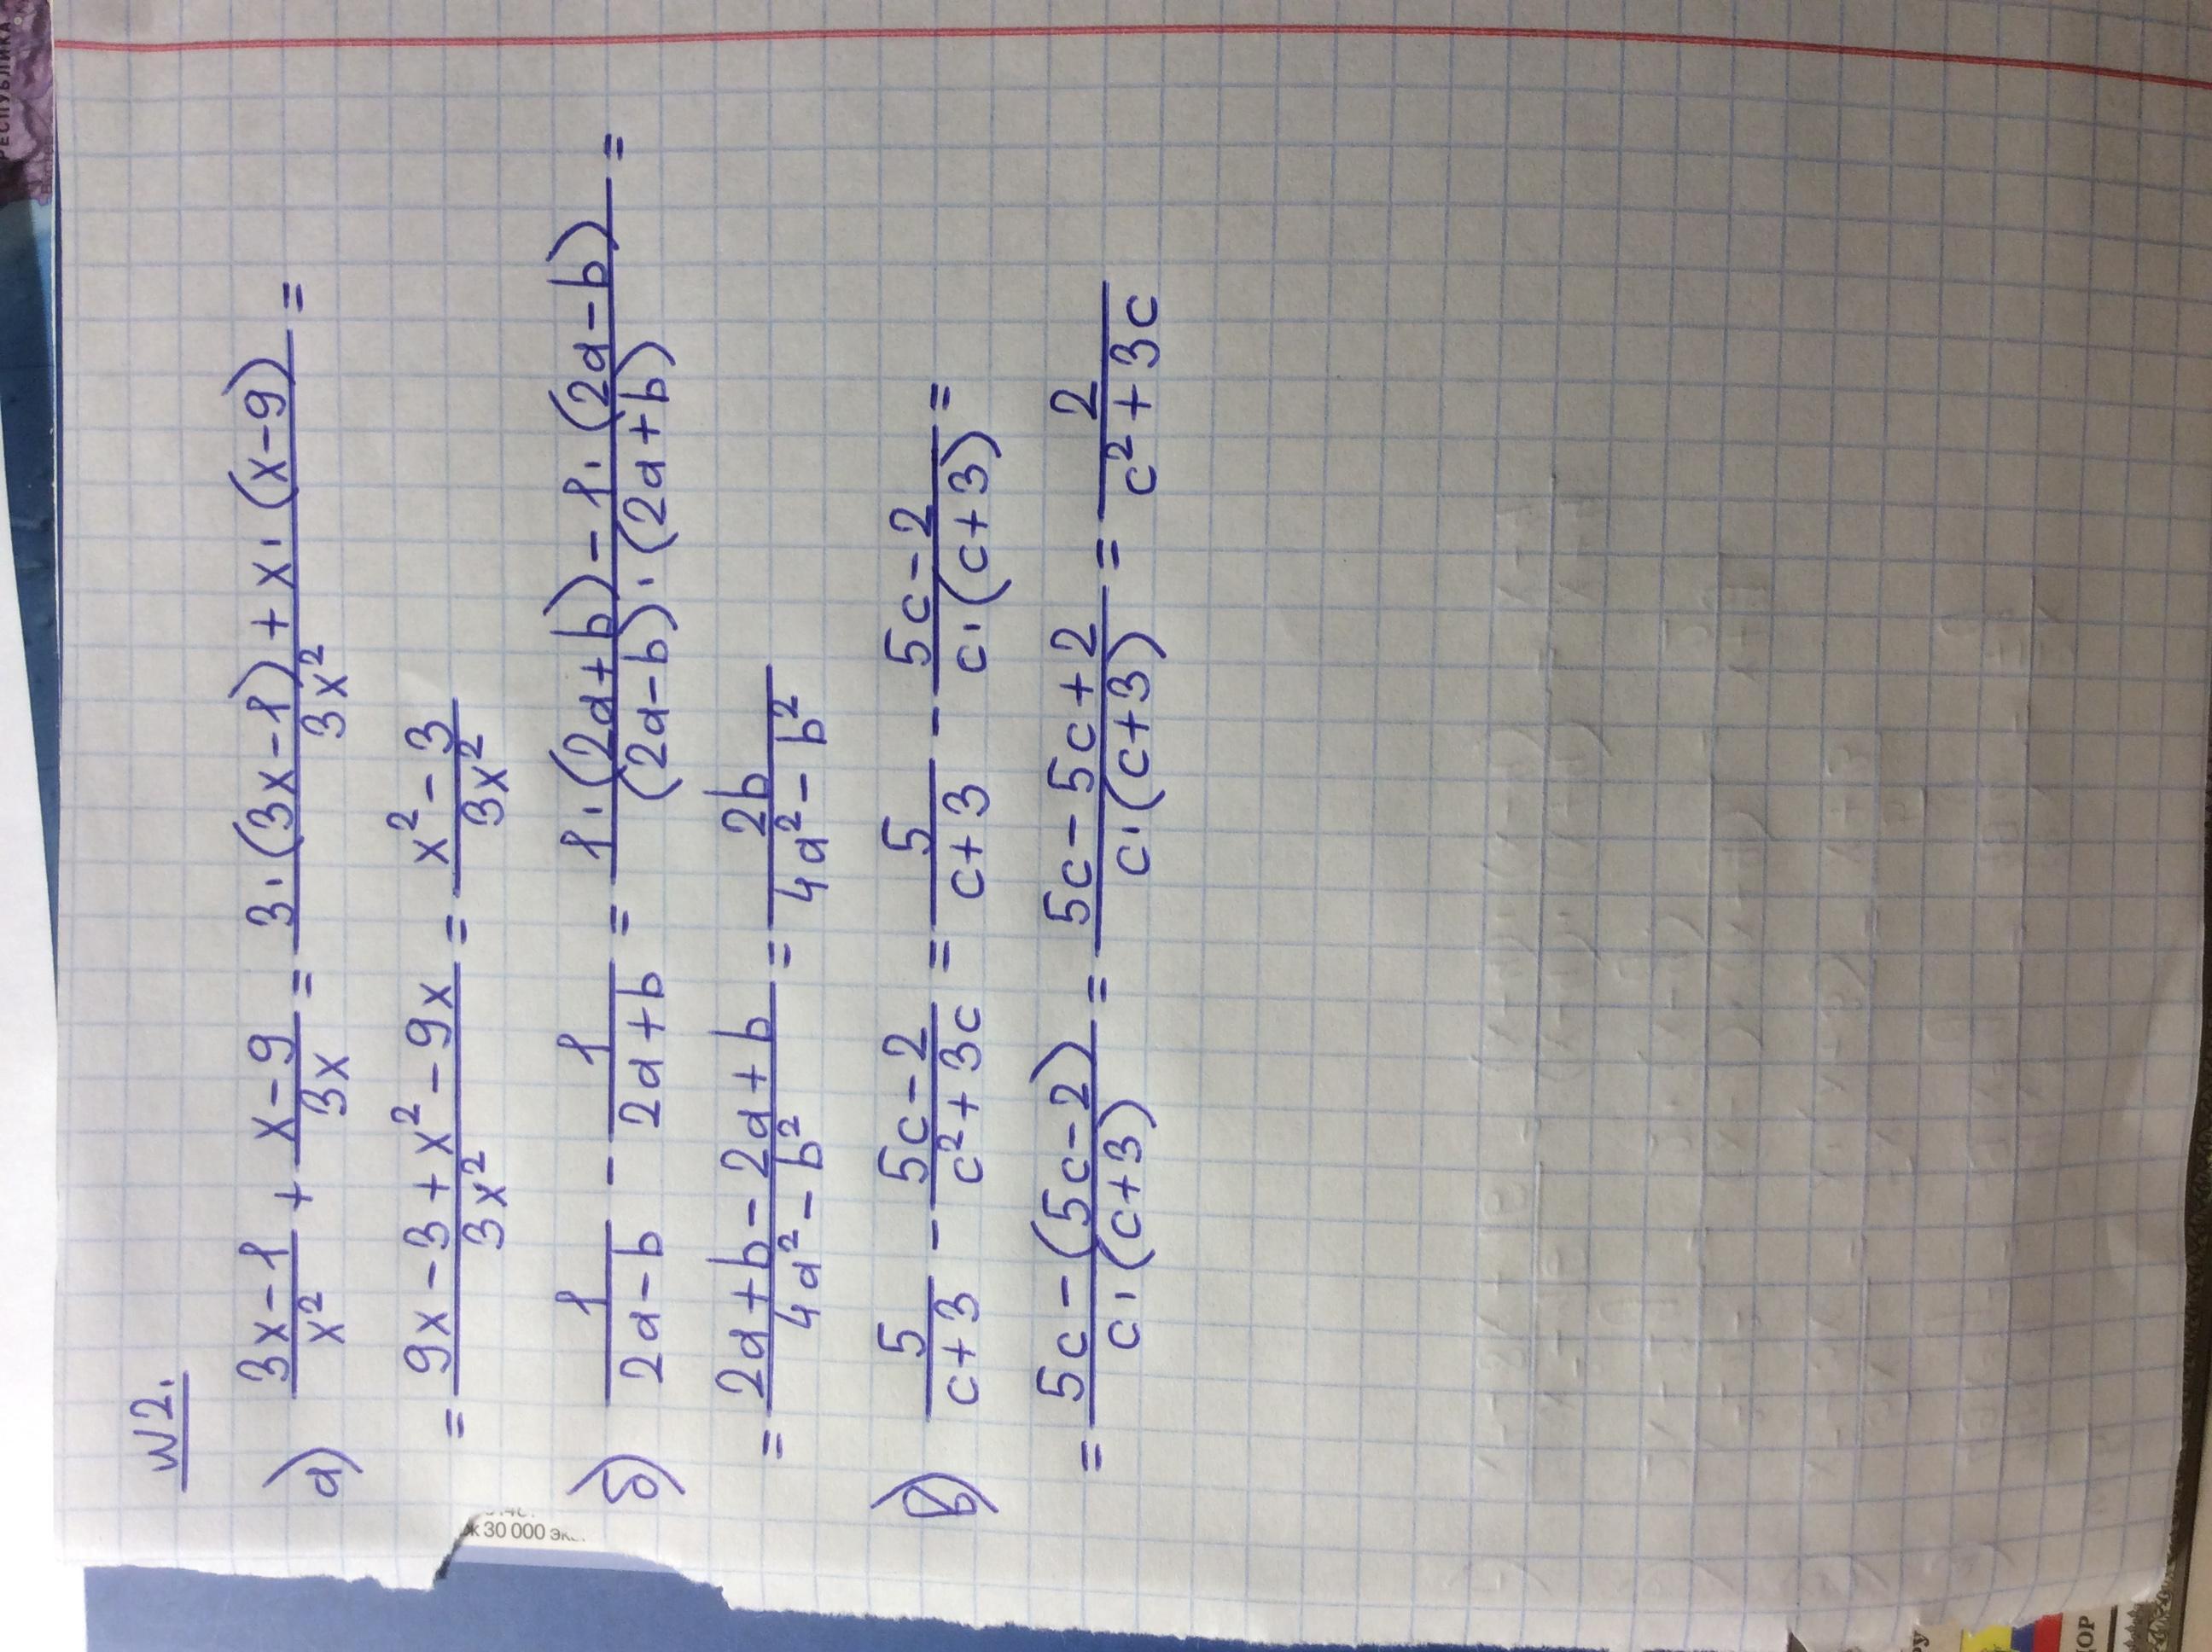 №2.
а) (3x-1)/x² + (x-9)/3x = (3·(3x-1)+x·(x-9))/3x² =
= (9x-3+x²-9x)/3x² = (x²-3)/3x²
б) 1/(2a-b) - 1/(2a+b) = (1·(2a+b)-1·(2a-b))/((2a-b)·(2a+b)) =
= (2a+b-2a+b)/(4a²-b²) = 2b/(4a²-b²)
в) 5/(c+3) - (5c-2)/(c²+3c) = 5/(c+3) - (5c-2)/(c·(c+3)) =
= (5c-(5c-2))/(c·(c+3)) = (5c-5c+2)/(c·(c+3)) = 2/(c²+3c)
РЕСПУБЛИКА
30 000